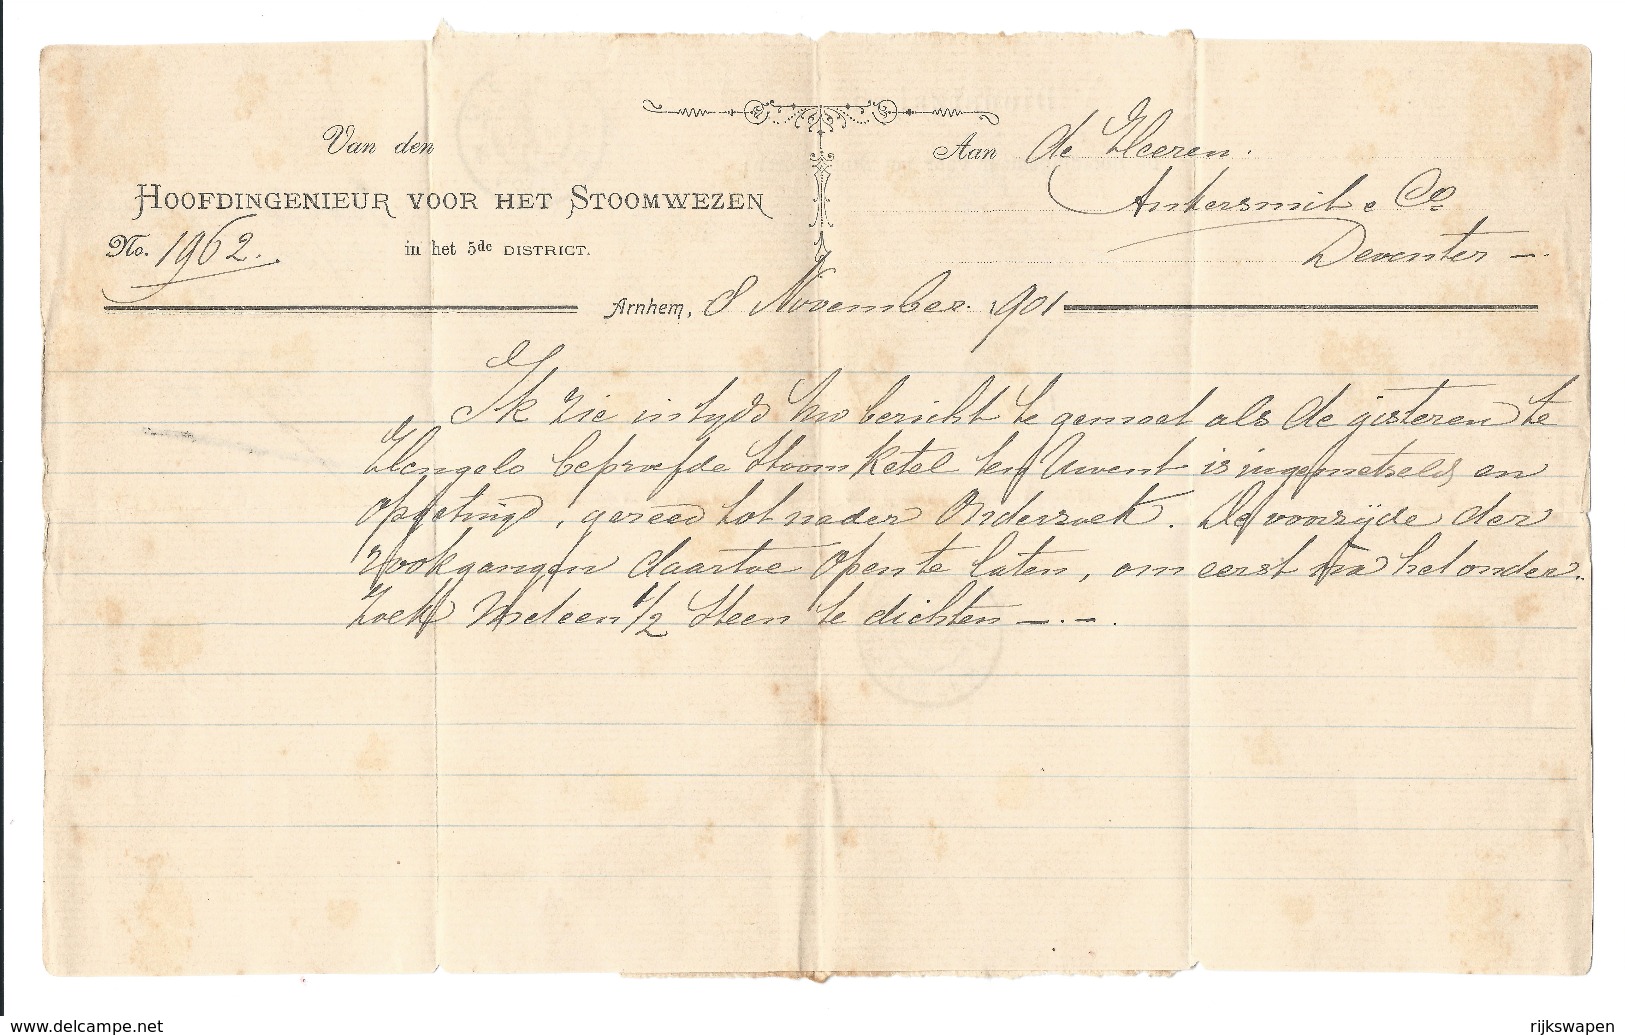 Van den
HOOFDINGENIEUR VOOR HET STOOMWEZEN
No. 1962.
in het 5de DISTRICT.
Aan de Heeren.
Ankersmit & Co
Deventer -.
Arnhem, 8 November 1901
Ik zie intijds Uw bericht te gemoet als de gisteren te
Hengelo beproefde Stoomketel ten Uwent is ingemetseld en
opgetuigd, gereed tot nader Onderzoek. De voorzijde der
rookgangen daartoe open te laten, om eerst na het onder-
zoek met een 1/2 steen te dichten -.-.
www.delcampe.net
rijkswapen